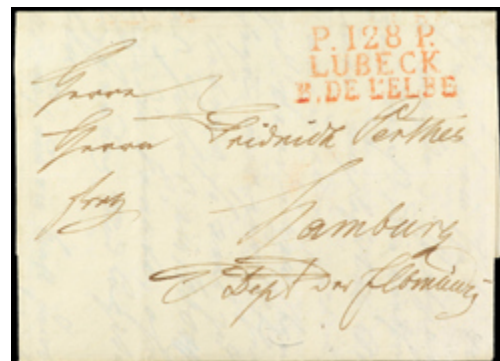 P. 128 P.
LUBECK
B. DE L'ELBE
Herrn
Herrn Fridrich Perthes
Hamburg
Dept der Elbmündg